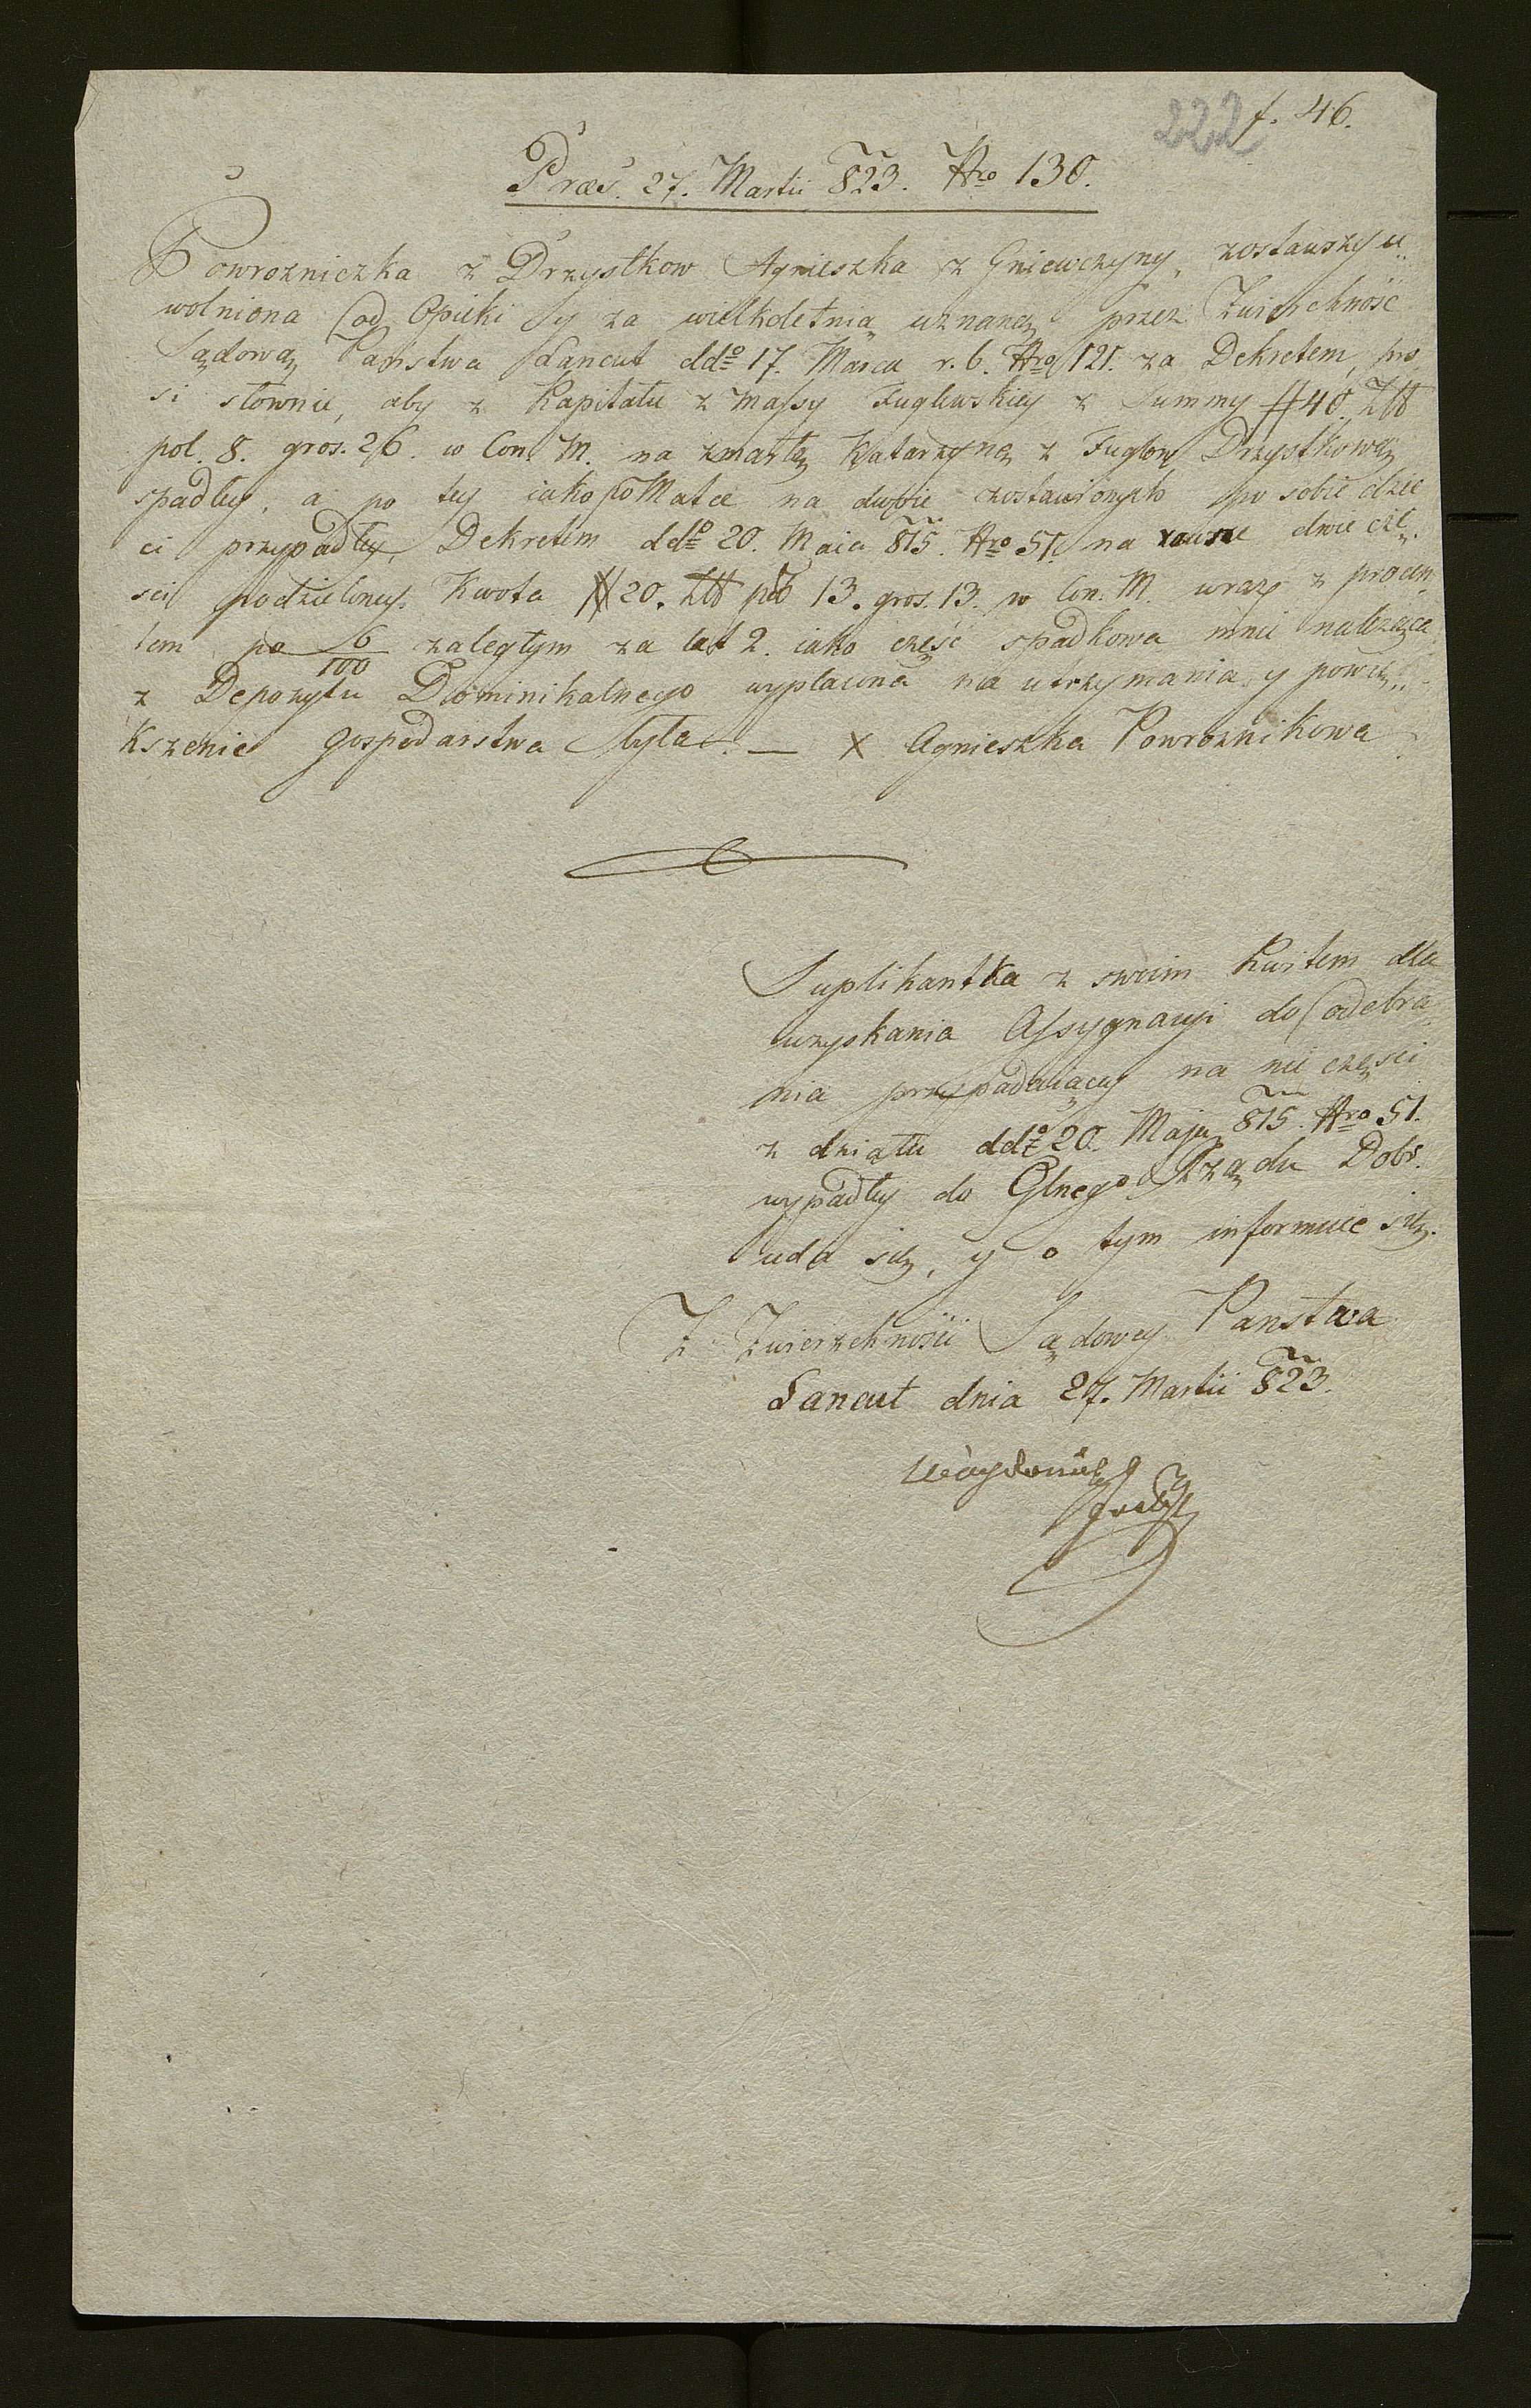 222 f. 46.
Præs. 27. Martii 823. Nro 130.
Powrozniczka z Drzystkow Agnieszka z Gniewczyny, zostawszy u„
wolniona od Opieki y za wielkoletnią uznaną przez Zwierzchność
Sądową Państwa Łancut ddo 17. Marca r. b. Nro 121. za Dekretem, pro„
si słownie, aby z Kapitału z Massy Fuglewskiey z Summy # 40. Złł
pol. 8. gros. 26. w Con. M. na zmarłą Katarzyną z Fuglow Drzystkową
spadłey, a po tey iako po Matce na dwoie zostawionych po sobie dzie
ci przypadłey, Dekretem ddo 20. Maia 815. Nro 51. na rowne dwie czę„
sci podzieloney. Kwota # 20. Złł pol 13. gros. 13. w Con. M. wraz z procen„
tem po 6/100 zaległym za lat 2. iako część spadkowa mnie należąca
z Depozytu Dominikalnego wypłacona na utrzymania y powię„
kszenie Gospodarstwa była. — X Agnieszka Powroznikowa
Suplikantka z swoim Kwitem dla
uzyskania Assygnacyi do odebra
nia przypadaiącey na nie części
z działu ddo 20. Maju 815. Nro 51.
wypadłey do Glnego Rządu Dobr.
uda się, y o tym informuie się.
Z Zwierzchności Sądowey Panstwa
Łancut dnia 27. Martii 823.